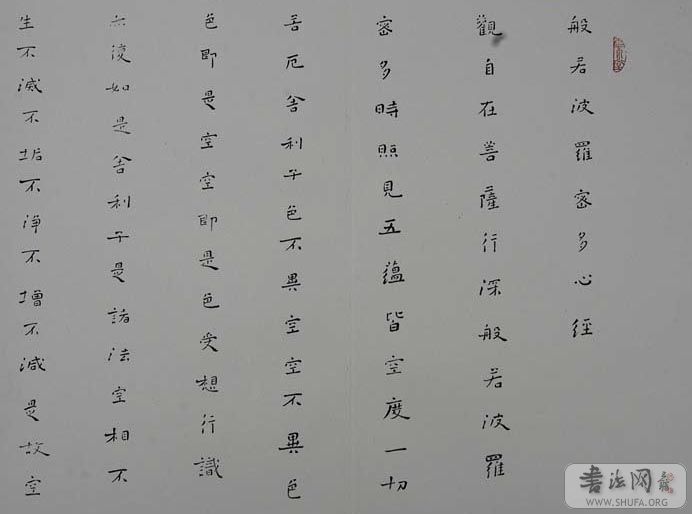 般若波羅密多心經
觀自在菩薩行深般若波羅
密多時照見五蘊皆空度一切
苦厄舍利子色不異空空不異色
色即是空空即是色受想行識
亦復如是舍利子是諸法空相不
生不滅不垢不淨不增不減是故空
書法网
WWW.SHUFA.ORG